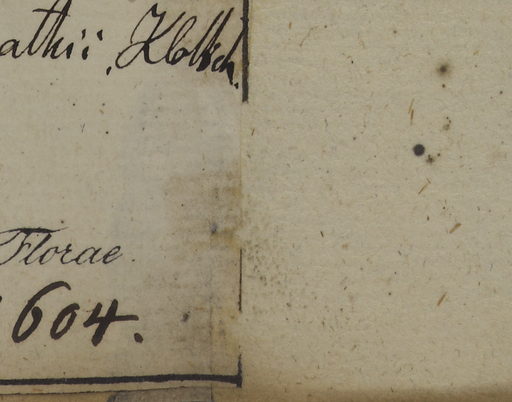 athii, Klotzsch.
Florae
604.